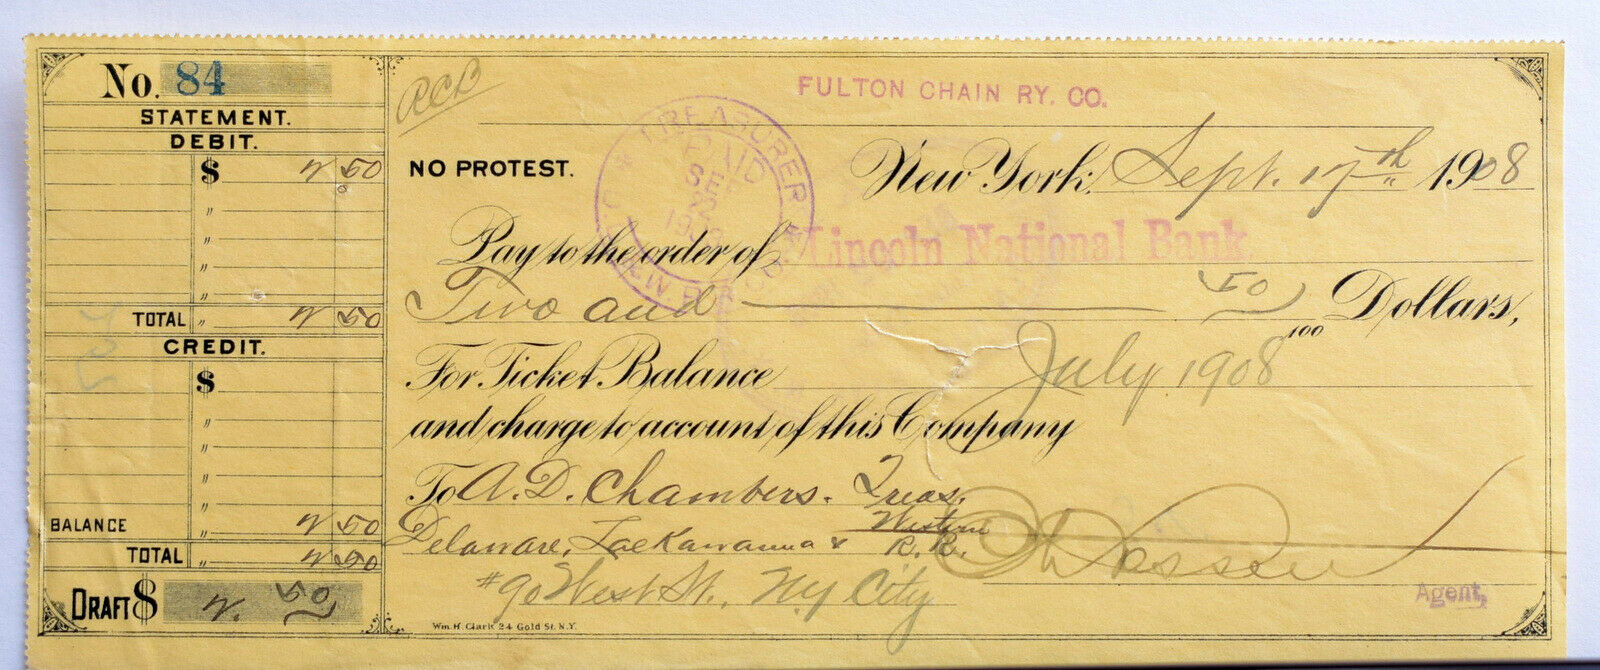 No. 84
STATEMENT.
DEBIT.
$ 2 50
"
"
"
"
TOTAL " 2 50
CREDIT.
$
"
"
"
"
BALANCE " 2 50
TOTAL " 2 50
DRAFT $ 2. 50
RCB
FULTON CHAIN RY. CO.
NO PROTEST.
TREASURER
PAID
SEP
New York, Sept. 17th 1908
Pay to the order of Lincoln National Bank
Two and 50/100 Dollars,
For Ticket Balance July 1908
and charge to account of this Company
To A. D. Chambers. Treas.
Delaware, Lackawanna & Western R.R.
#90 West St., N.Y City
Agent,
Wm. H. Clark 24 Gold St. N.Y.